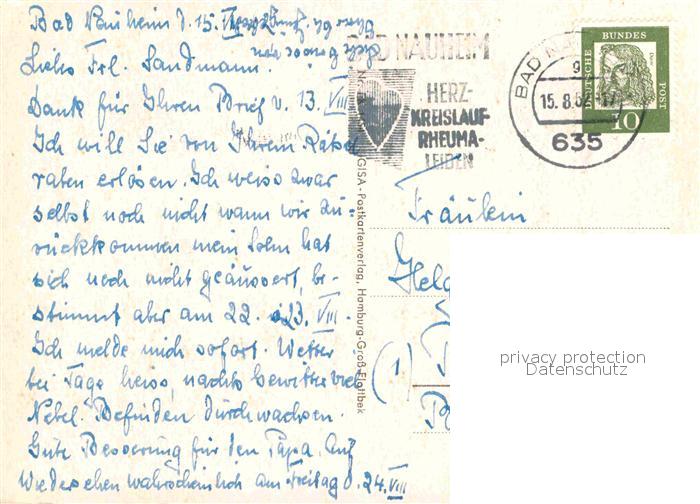 Bad Nauheim d. 15. VIII
Liebes Frl. Sandmann.
Dank für Ihren Brief v. 13. VIII
Ich will Sie von Ihrem Rätsel
raten erlösen. Ich weiss zwar
selbst noch nicht wann wir zu-
rückkommen mein Sohn hat
sich noch nicht geäussert, be-
stimmt aber am 22. 23. VIII.
Ich melde mich sofort. Wetter
bei Tage heiss, nachts Gewitter viel
Nebel. Befinden durchwachsen.
Gute Besserung für den Papa. Auf
Wiedersehen wahrscheinlich am Freitag d. 24. VIII
BAD NAUHEIM
HERZ-
KREISLAUF
RHEUMA-
LEIDEN
BAD
15.8.62
635
DEUTSCHE BUNDES POST
10
GISA-Postkartenverlag, Hamburg-Groß-Flottbek
Fräulein
Helg
(1)
privacy protection
Datenschutz